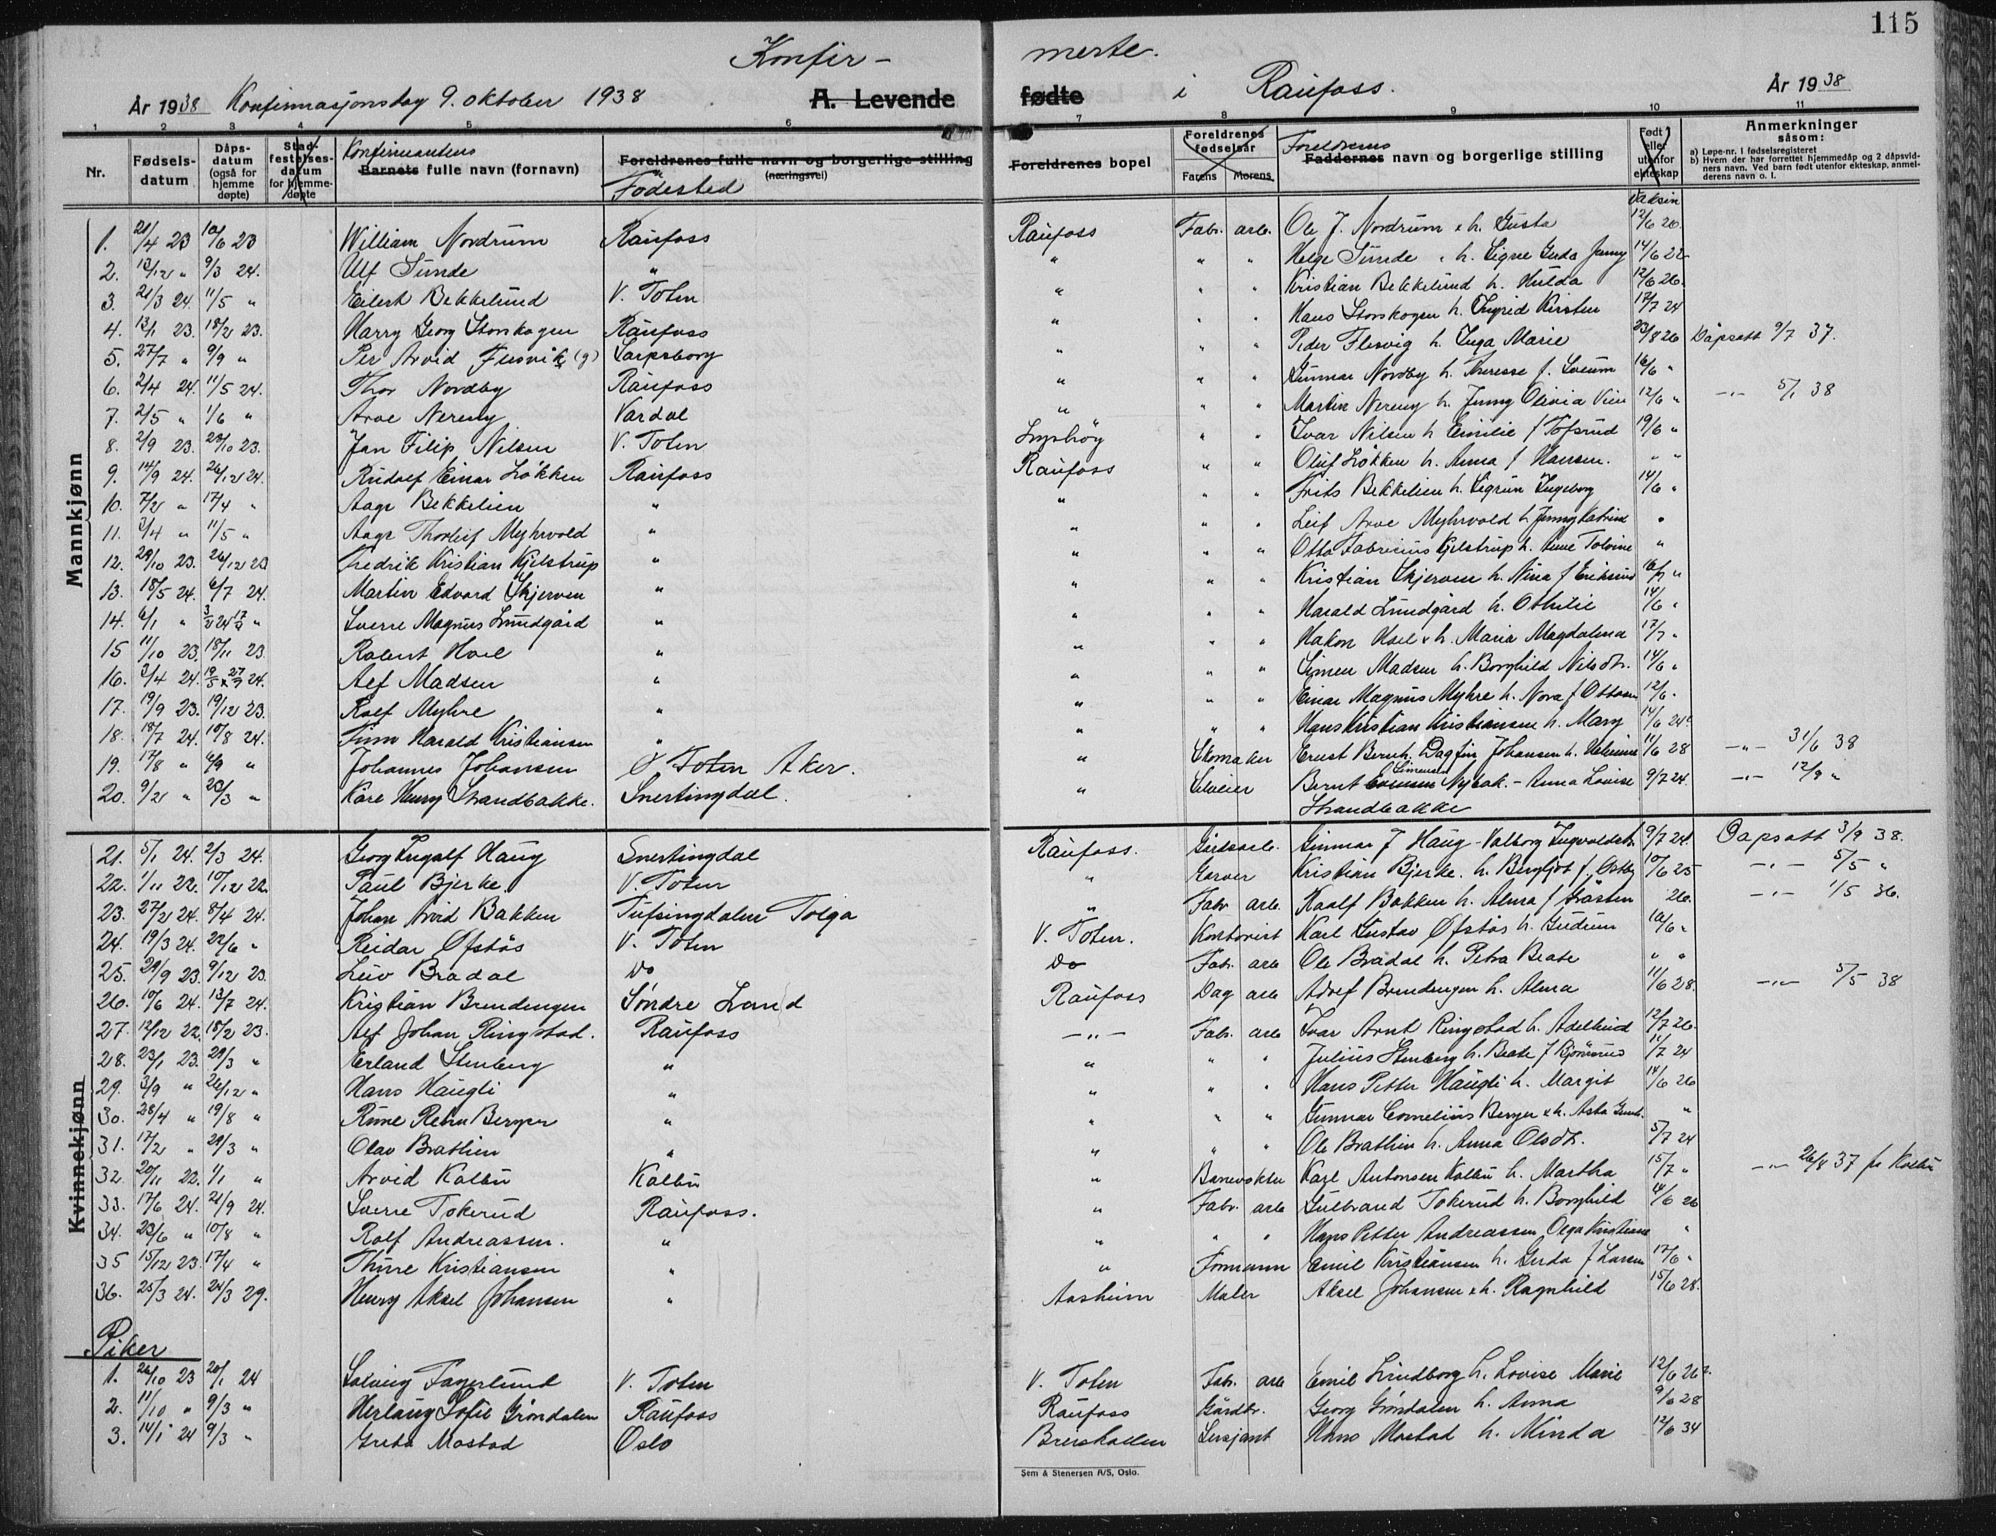 115
Konfir - merte.
År 1938 Konfirmasjonsdag 9. oktober 1938 A. Levende fødte i Raufoss. År 1938
1 2 3 4 5 6 7 8 9 10 11
Nr. Fødselsdatum Dåpsdatum (også for hjemme døpte) Stadfestelsesdatum for hjemmedøpte Konfirmantens Barnets fulle navn (fornavn) Foreldrenes fulle navn og borgerlige stilling (næringsvei) Fødested Foreldrenes bopel Foreldrenes fødselsår Farens Morens Foreldrenes Faddernes navn og borgerlige stilling Født i eller utenfor ekteskap Vaksin Anmerkninger såsom: a) Løpe-nr. i fødselsregisteret b) Hvem der har forrettet hjemmedåp og 2 dåpsvidners navn. Ved barn født utenfor ekteskap, anmelderens navn o. l.
Mannkjønn
1. 21/4 23 10/6 23 William Nordrum Raufoss Raufoss Fabr. arb. Ole J. Nordrum & h. Gusta 12/6 20
2. 13/12 " 9/3 24. Ulf Sunde " " " " Helge Sunde " h. Signe Gerda Jenny 14/6 22
3. 21/3 24 11/5 " Eilert Bekkelund V. Toten " " " Kristian Bekkelund h. Hulda 12/6 26.
4. 13/1 23. 18/2 23. Harry Georg Storskogen Raufoss " " " Hans Storskogen h. Ingrid Kirsten 17/7 24
5. 27/7 " 9/9 " Per Arvid Flesvik (g) Sarpsborg " " " Peder Flesvig h. Inga Marie 23/8 26 Dåpsatt 9/7 37.
6. 2/4 24. 11/5 24. Thor Nordby Raufoss " " " Gunnar Nordby h. Therese f. Sveum 16/6 "
7. 2/5 " 1/6 " Arve Nereng Vardal " " " Martin Nereng h. Jenny Olivia 12/6 " -"- 5/1 38
8. 2/9 23. 28/10 23. Jan Filip Nilsen V. Toten " " Ivar Nilsen h Emilie f Tofsrud 19/6 "
9. 14/9 24. 26/12 24. Rudolf Einar Løkken Raufoss Raufoss " " Oluf Løkken h. Anna f Hansen. " "
10. 7/2 " 17/4 " Aage Bekkelien " " " " Frits Bekkelien h. Sigrun Ingeborg 14/6 "
11. 2/4 " 11/5 " Aage Thorleif Myhrvold " " " " Leif Arve Myhrvold h Jenny Katrine "
12. 29/10 23. 26/12 23 Fredrik Kristian Kjelstrup " " " " Otto Fabricius Kjelstrup h. Anne Tolvine "
13. 18/5 24. 6/7 24. Martin Edvard Skjerven " " " " Kristian Skjerven h. Nina f Eriksrud 16/7 "
14. 6/1 " 3/2 24 17/2 " Sverre Magnus Lundgård " " " " Harald Lundgård h. Othilie 14/6 "
15 11/10 23. 18/11 23. Robert Hoel " " " " Hakon Hoel & h. Maria Magdalena 17/7 "
16. 3/4 24. 19/5 x 27/7 24. Alf Madsen " " " " Simen Madsen h. Borghild Nilsdtr. 14/6 "
17. 19/9 23. 19/12 23. Rolf Myhre " " " " Einar Magnus Myhre h. Nora f Ottosen 12/6 "
18. 18/7 24. 10/8 24. Finn Harald Kristiansen " " " " Hans Kristian Kristiansen h. Mary 14/6 24
19. 17/8 " 6/9 " Johannes Johansen Ø Toten Aker. " Skomaker Ernst Bernh. Dagfin Johansen h. 11/6 28 -"- 31/6 38
20. 9/2 " 20/3 " Kåre Henry Strandbakke. Snertingdal. " Bernt Simensen Nybak. - Anna Lovise Strandbakke 9/7 24. -"- 12/9 "
21. 5/1 24. 2/3 24. Georg Ingolf Haug Snertingdal Raufoss. Gårdsarb. Gunnar J Haug - Valborg Ingvaldsdtr 9/7 24. Dåpsatt 3/9 38.
22. 1/11 22. 10/12 22. Paul Bjerke. V. Toten " Garver Kristian Bjerke. h. Bergljot f. Østby 10/6 25 -"- 5/5 "
23. 27/2 24. 8/4 24. Johan Arvid Bakken Tufsingdalen Tolga " Fabr arb. Roalf Bakken h. Alma f 26. -"- 1/5 36.
24. 19/3 24. 22/6 " Reidar Øfstås V. Toten V. Toten. Kontorist Karl Gustav Øfstås h. Gudrun 16/6 "
25. 29/9 23. 9/12 23. Leiv Brådal Do Do Fabr. arb Ole Brådal h. Petra Beate " "
26. 10/6 24. 13/7 24. Kristian Brendengen Søndre Land Raufoss Dag arb Adolf Brendengen h. Alma 11/6 28. -"- 5/5 38
Kvinnekjønn
27. 12/12 22. 18/2 23. Alf Johan Ringstad. Raufoss -"- Fabr. arb Ivar Arnt Ringstad h. Adelheid 12/7 26.
28. 23/1 23. 29/3 " Erland Stenberg " " " " Julius Stenberg h. Beate f Bjørnerud 11/7 24
29. 3/9 " 26/12 " Hans Haugli " " " " Hans Petter Haugli h. Margit 14/6 26
30. 28/4 " 19/8 " Rune Rehn Berger " " " " Gunnar Cornelius Berger & h. Asta "
31. 17/2 " 29/3 " Olav Bråthen " " " " Ole Bråthen h. Anna Olsdtr. 5/7 24
32. 20/11 22. 1/1 " Arvid Kolbu Kolbu " Banevokter Karl Antonsen Kolbu h. Martha 15/7 " -"- 26/8 37 fr Kolbu
33. 17/6 24. 21/9 24. Sverre Tokerud Raufoss. " Fabr. arb Gulbrand Tokerud h. Borghild 14/6 26
34. 23/6 " 10/8 " Rolf Andreassen. " " " " Hans Petter Andreassen Olga Kristiane "
35 15/12 23. 17/4 " Thure Kristiansen " " Formann Emil Kristiansen h. Gerda f Larsen 17/6 "
36. 25/3 24. 24/3 29. Henry Aksel Johansen " Aasheim Maler Aksel Johansen & h. Ragnhild 15/6 28.
Piker
1. 26/10 23 20/1 24 Solveig Fagerlund V. Toten V. Toten Fabr. arb Emil Lindborg h. Lovise Marie 12/6 26
2. 11/10 " 9/3 " Herlaug Sofie Grøndalen Raufoss Raufoss Gårdbr. Georg Grøndalen h. Anna 9/6 28
3. 14/1 24 9/3 " Greta Mostad Oslo Breiskallen Sersjant Hans Mostad h. Minda 12/6 34
Sem & Stenersen A/S, Oslo.